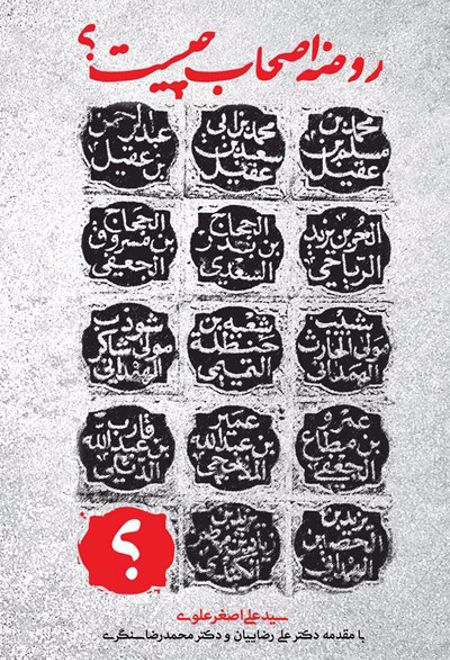 روضه اصحاب چیست؟
محمد بن
مسلم بن
عقیل
محمد بن ابی
سعید بن
عقیل
عبدالرحمن
بن عقیل
الحر بن یزید
الریاحي
الحجاج
بن بدر
السعدي
الحجاج
بن مسروق
الجعفي
شبیب
مولی الحارث
الهمداني
حنظلة
التمیمي
شوذب
مولی شاکر
الهمداني
عمرو
بن مطاع
الجعفي
عمیر
بن عبدالله
المذحجي
قارب
بن عبدالله
الدئلي
یزید بن
الحصین
الهمداني
یزید بن
زیاد بن
الکندي
؟
سید علی اصغر علوی
با مقدمه دکتر علی رضاییان و دکتر محمدرضا سنگری